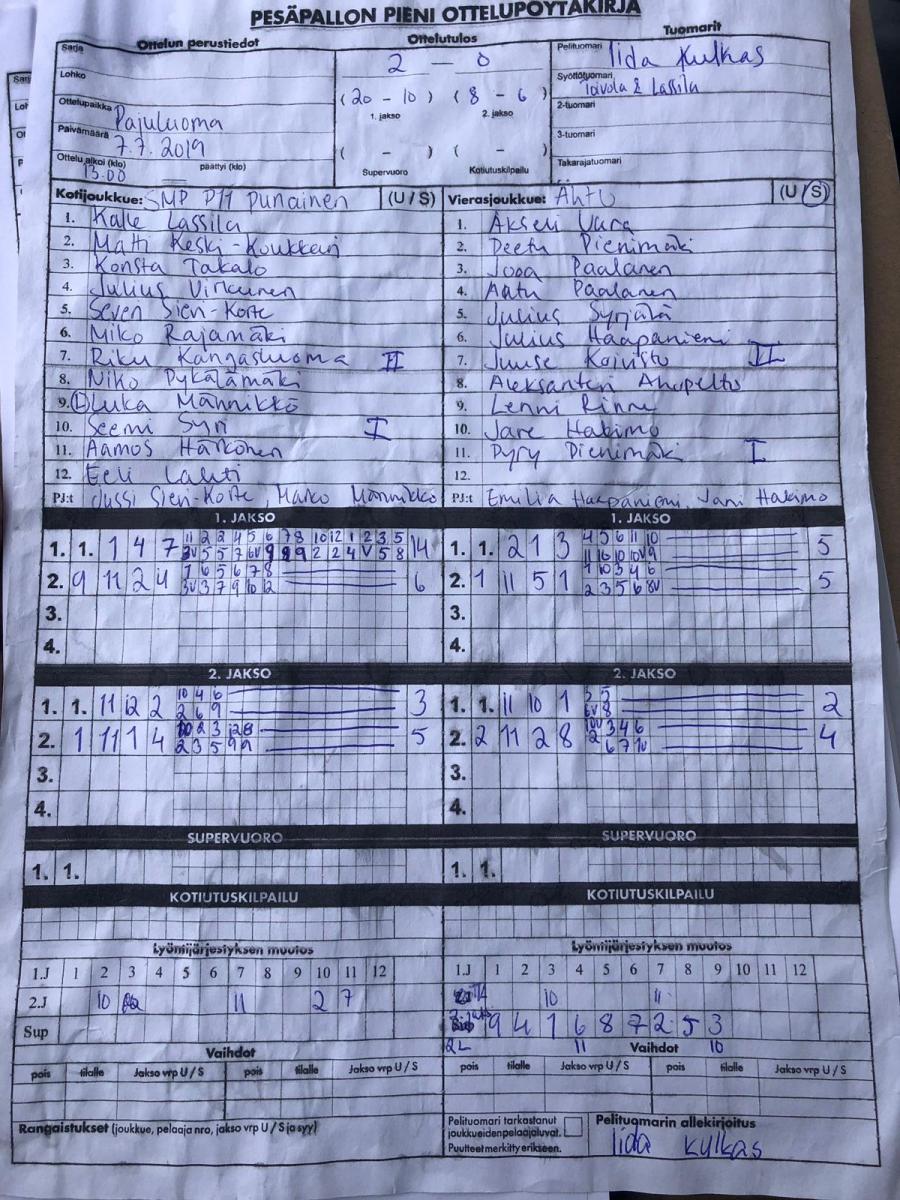 PESÄPALLON PIENI OTTELUPÖYTÄKIRJA
Ottelun perustiedot
Ottelutulos
Tuomarit
Sarja
2 – 0
Pelituomari Iida Kulkas
Lohko
(20 - 10) (8 - 6)
Syöttötuomari Taivola & Lassila
1. jakso 2. jakso
Ottelupaikka Pajuluoma
2-tuomari
Päivämäärä 7.7.2019
3-tuomari
Ottelu alkoi (klo) 13.00 päättyi (klo)
( - ) ( - )
Supervuoro Kotiutuskilpailu
Takarajatuomari
Kotijoukkue: SMP P11 Punainen (U / S)
1. Kalle Lassila
2. Matti Keski-Koukkari
3. Konsta Takalo
4. Julius Virkunen
5. Seven Sien-Korte
6. Miko Rajamäki
7. Riku Kangasluoma II
8. Niko Pykälämäki
9. L Luka Männikkö
10. Seemi Syri I
11. Aamos Härkönen
12. Eeli Lahti
PJ:t Jussi Sien-Korte, Marko Männikkö
Vierasjoukkue: Ähtu (U / S)
1. Akseli Vara
2. Peetu Pienimäki
3. Jooa Paalanen
4. Aatu Paalanen
5. Julius Syrjälä
6. Julius Haapaniemi
7. Juuse Koivisto II
8. Aleksanteri Ahopelto
9. Lenni Rinne
10. Jare Hakimo
11. Pyry Pienimäki I
12.
PJ:t Emilia Haapaniemi, Jani Hakimo
1. JAKSO
1. 1. 1 4 7 11 2 2 4 5 6 7 8 10 12 1 2 3 5 14
3V 5 5 7 6V 9 8 9 2 2 4 V 5 8
2. 9 11 2 4 1 6 5 6 7 8 6
3V 3 7 9 10 12
3.
4.
1. JAKSO
1. 1. 2 1 3 4 5 6 11 10 5
11 10 10 10V 9
2. 1 11 5 1 1 10 3 4 6 5
2 3 5 6 8V
3.
4.
2. JAKSO
1. 1. 11 12 2 10 4 6 3
2 6 9
2. 1 11 1 4 10 2 3 12 8 5
2 3 5 9 9
3.
4.
2. JAKSO
1. 1. 11 10 1 3 5 2
6V 8
2. 2 11 2 8 10V 3 4 6 4
2 6 7 1V
3.
4.
SUPERVUORO
1. 1.
SUPERVUORO
1. 1.
KOTIUTUSKILPAILU
KOTIUTUSKILPAILU
Lyöntijärjestyksen muutos
1.J 1 2 3 4 5 6 7 8 9 10 11 12
2.J 10 11 2 7
Sup
Lyöntijärjestyksen muutos
1.J 1 2 3 4 5 6 7 8 9 10 11 12
10 11
9 4 1 6 8 7 2 5 3
2L 11 10
Vaihdot
pois tilalle Jakso vrp U / S pois tilalle Jakso vrp U / S
Vaihdot
pois tilalle Jakso vrp U / S pois tilalle Jakso vrp U / S
Rangaistukset (joukkue, pelaaja nro, jakso vrp U / S ja syy)
Pelituomari tarkastanut
joukkueiden pelaajaluvat.
Puutteet merkitty erikseen.
Pelituomarin allekirjoitus
Iida Kulkas